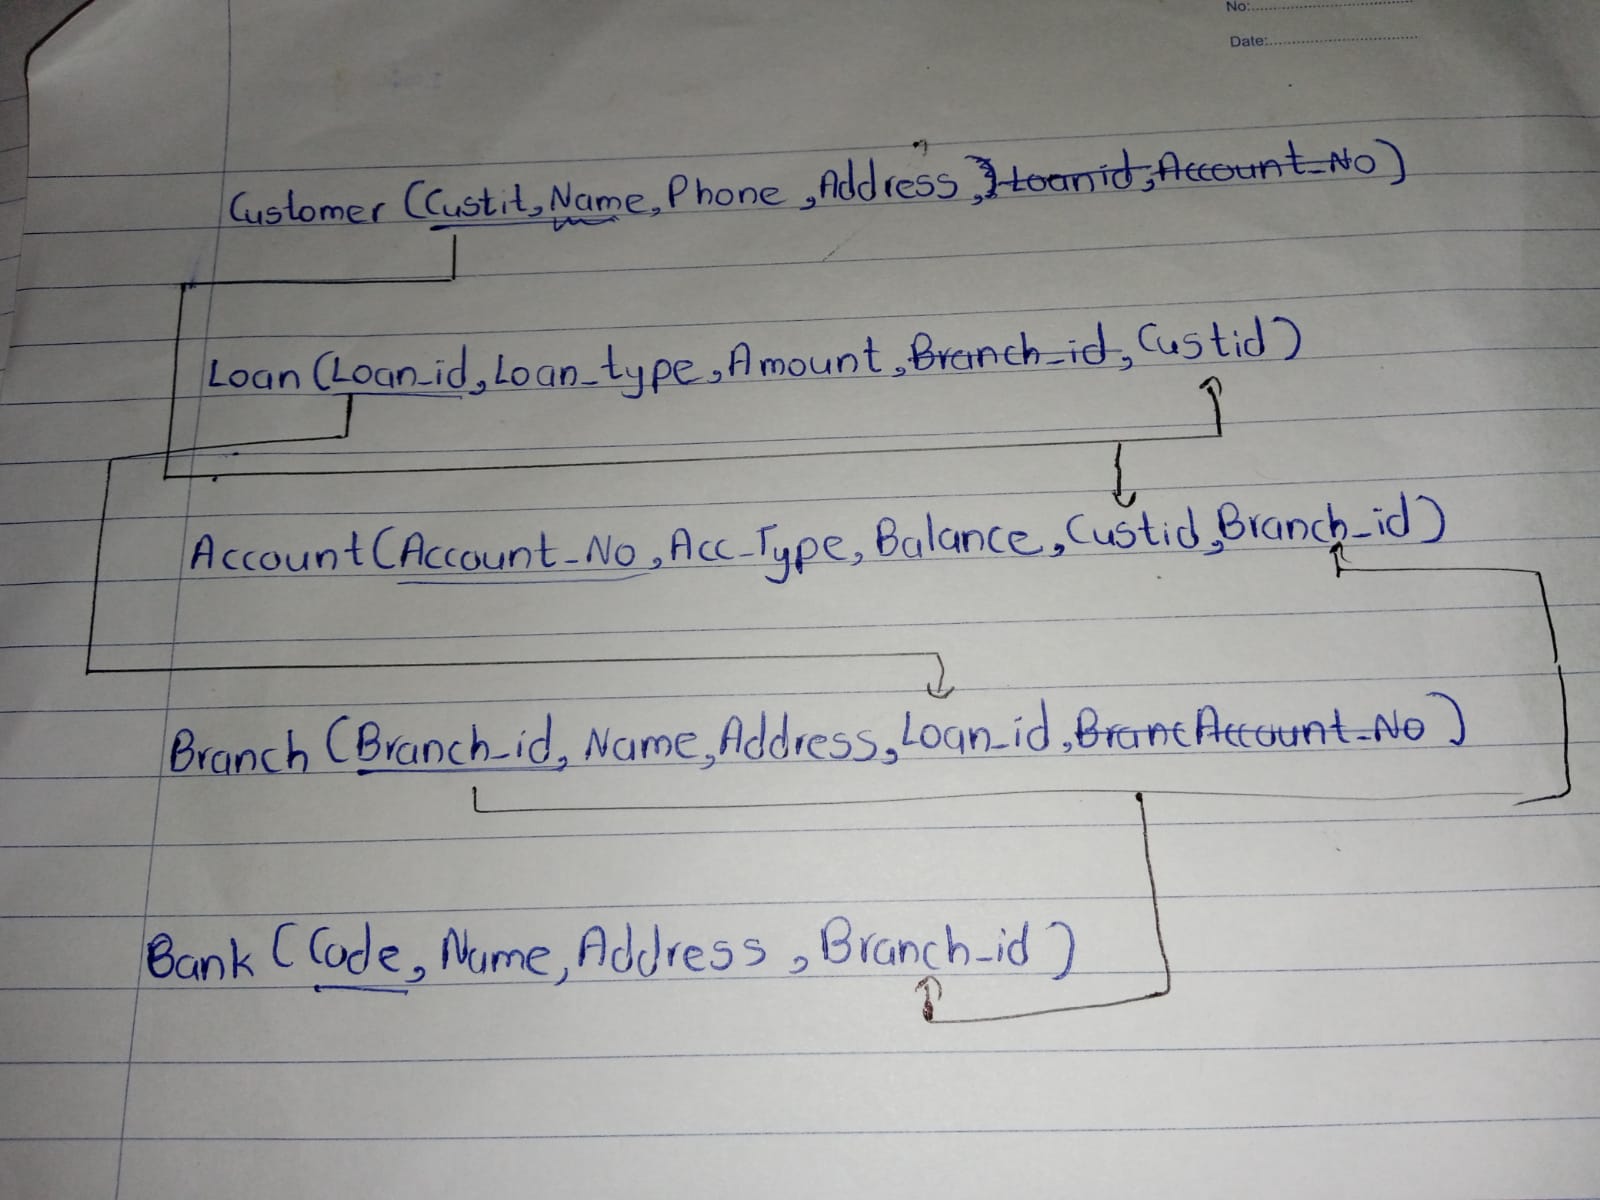 No:
Date:
Customer (Custit, Name, Phone, Address, Loanid, Account_No)
Loan (Loan_id, Loan_type, Amount, Branch_id, Custid)
Account (Account_No, Acc_Type, Balance, Custid, Branch_id)
Branch (Branch_id, Name, Address, Loan_id, Branc Account_No)
Bank (Code, Name, Address, Branch_id)